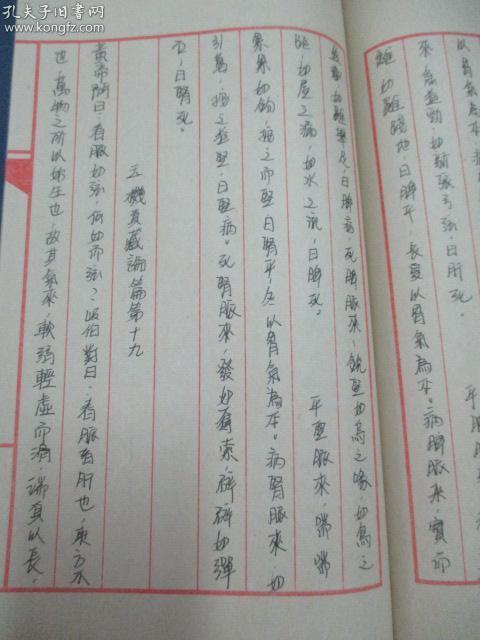 孔夫子旧書网
www.kongfz.com
以胃氣為本
來急益勁，如新張弓弦，曰肝死。
離，如雞踐地，曰脾平，長夏以胃氣為本。病脾脈來，實而
盈數，如雞舉足，曰脾病。死脾脈來，銳堅如烏之喙，如鳥之
距，如屋之漏，如水之流，曰脾死。　平腎脈來，喘喘
累累如鈎，按之而堅，曰腎平，冬以胃氣為本。病腎脈來，如
引葛，按之益堅，曰腎病。死腎脈來，發如奪索，辟辟如彈
石，曰腎死。
玉機真藏論篇第十九
黃帝問曰：春脈如弦，何如而弦？岐伯對曰：春脈者肝也，東方木
也，萬物之所以始生也，故其氣來，軟弱輕虛而滑，端直以長，